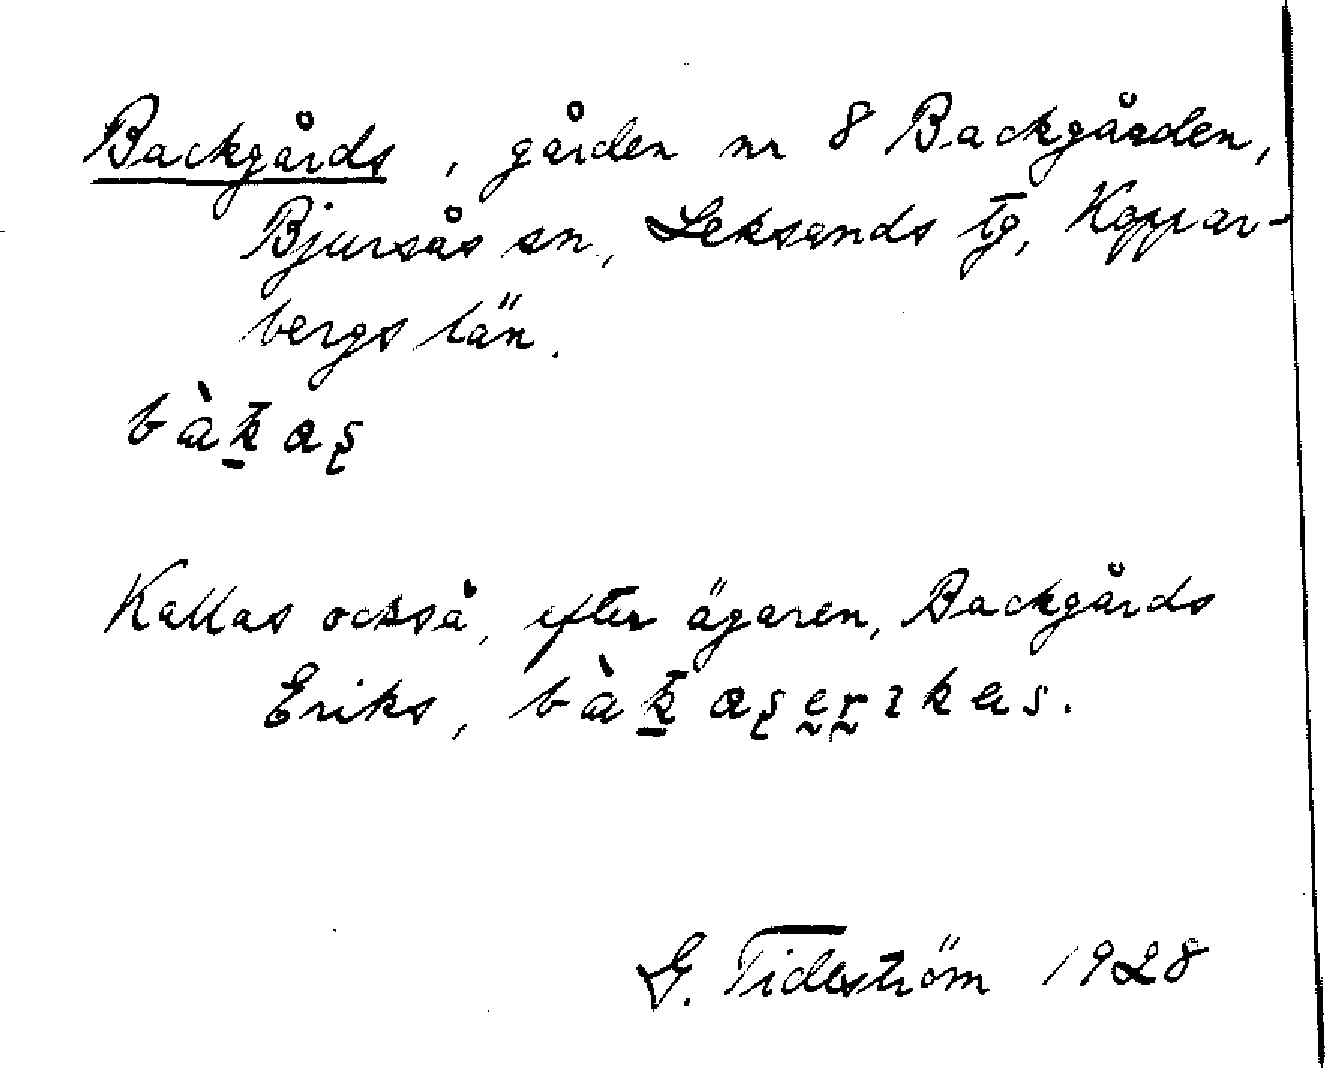 Backgårds, gården nr 8 Backgården,
Bjursås sn, Leksands tg, Koppar-
bergs län.
bàk̲aʂ
Kallas också, efter ägaren, Backgårds
Eriks, bàk̲aʂḛr̰ɪkas.
G. Tideström 1928